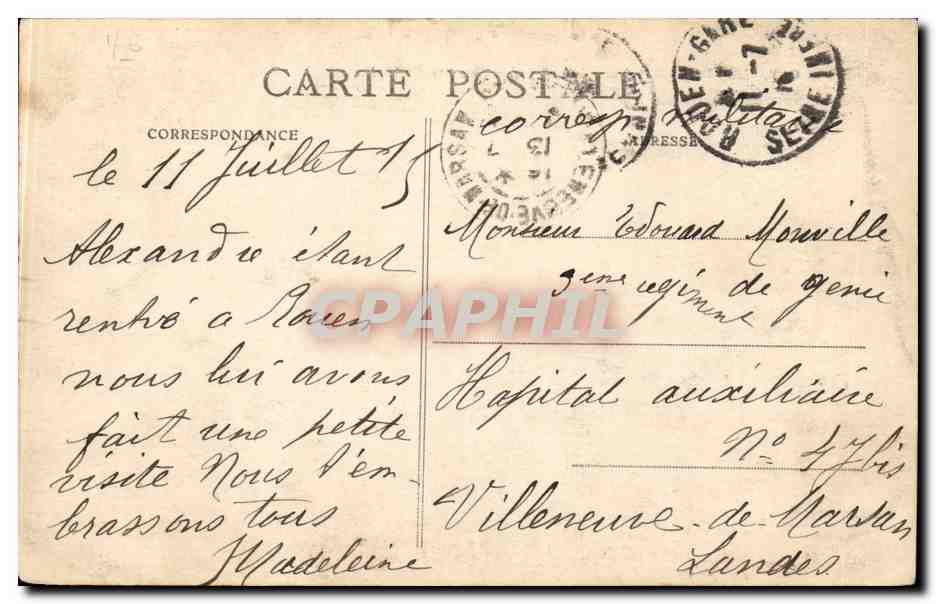 CARTE POSTALE
CORRESPONDANCE
ADRESSE
corresp militaire
le 11 Juillet 15
Alexandre étant
rentré a Rouen
nous lui avons
fait une petite
visite Nous t'em-
brassons tous
Madeleine
Monsieur Edouard Monville
3eme regiment de genie
Hopital auxiliaire
No 47 bis
Villeneuve-de-Marsan
Landes
ROUEN-GARE
11-7
SEINE INFRE
13 7
VILLENEUVE-DE-MARSAN
CPAPHIL